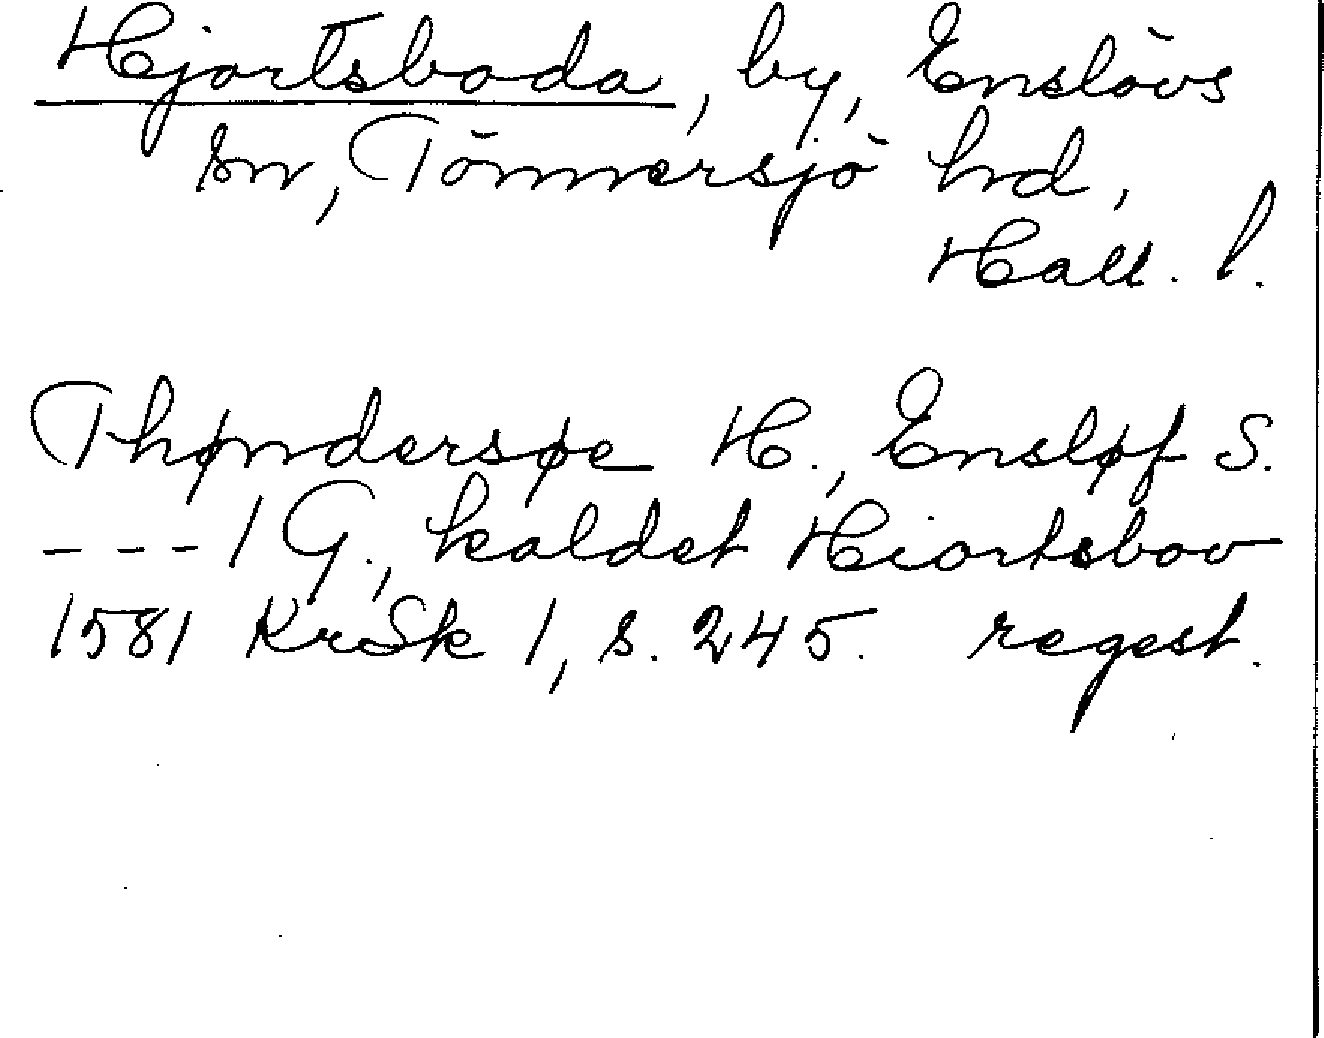 Hjortsboda, by, Enslövs
sn, Tönnersjö hd,
Hall. l.
Thøndersøe H., Ensløf S.
--- 1 G., kaldet Hiortsbov
1581 KrSk 1, s. 245. regest.